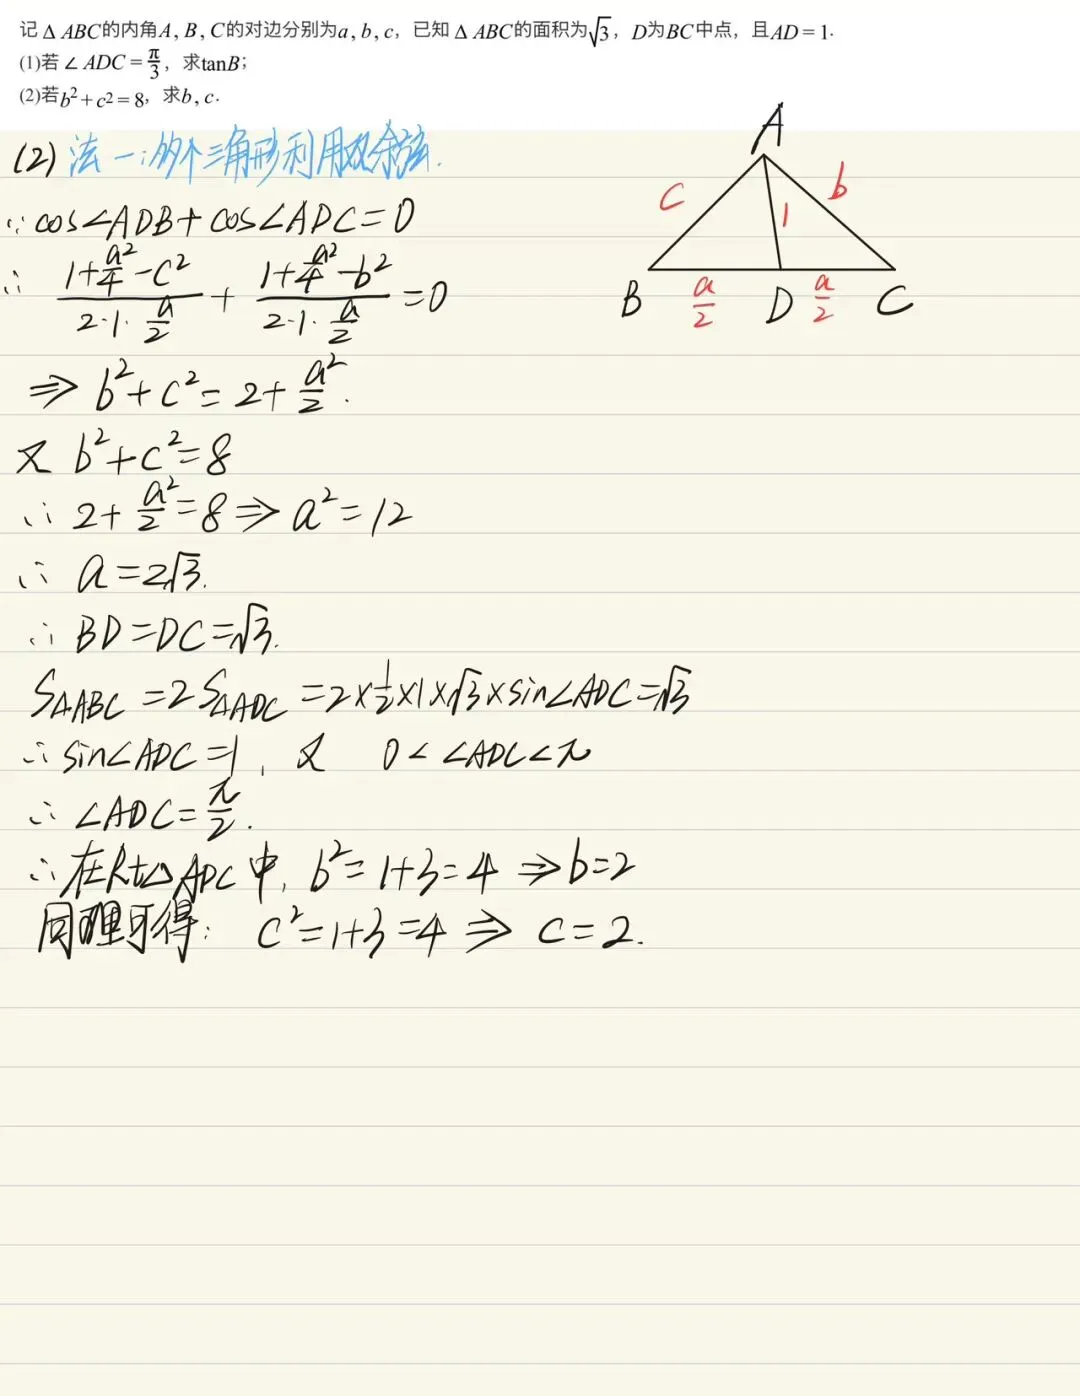 记△ABC的内角A, B, C的对边分别为a, b, c, 已知△ABC的面积为√3, D为BC中点, 且AD=1.
(1)若∠ADC=π/3, 求tanB;
(2)若b²+c²=8, 求b, c.
(2) 法一:两个三角形利用双余弦.
∵ cos∠ADB+cos∠ADC=0
∴ (1+a²/4-c²)/(2·1·a/2) + (1+a²/4-b²)/(2·1·a/2) =0
⇒ b²+c²=2+a²/2.
又 b²+c²=8
∴ 2+a²/2=8⇒a²=12
∴ a=2√3.
∴ BD=DC=√3.
S△ABC=2S△ADC=2×1/2×1×√3×sin∠ADC=√3
∴ sin∠ADC=1, 又 0<∠ADC<π
∴ ∠ADC=π/2.
∴ 在Rt△ADC中, b²=1+3=4 ⇒b=2
同理可得: c²=1+3=4 ⇒ c=2.
A
c b
1
B a/2 D a/2 C